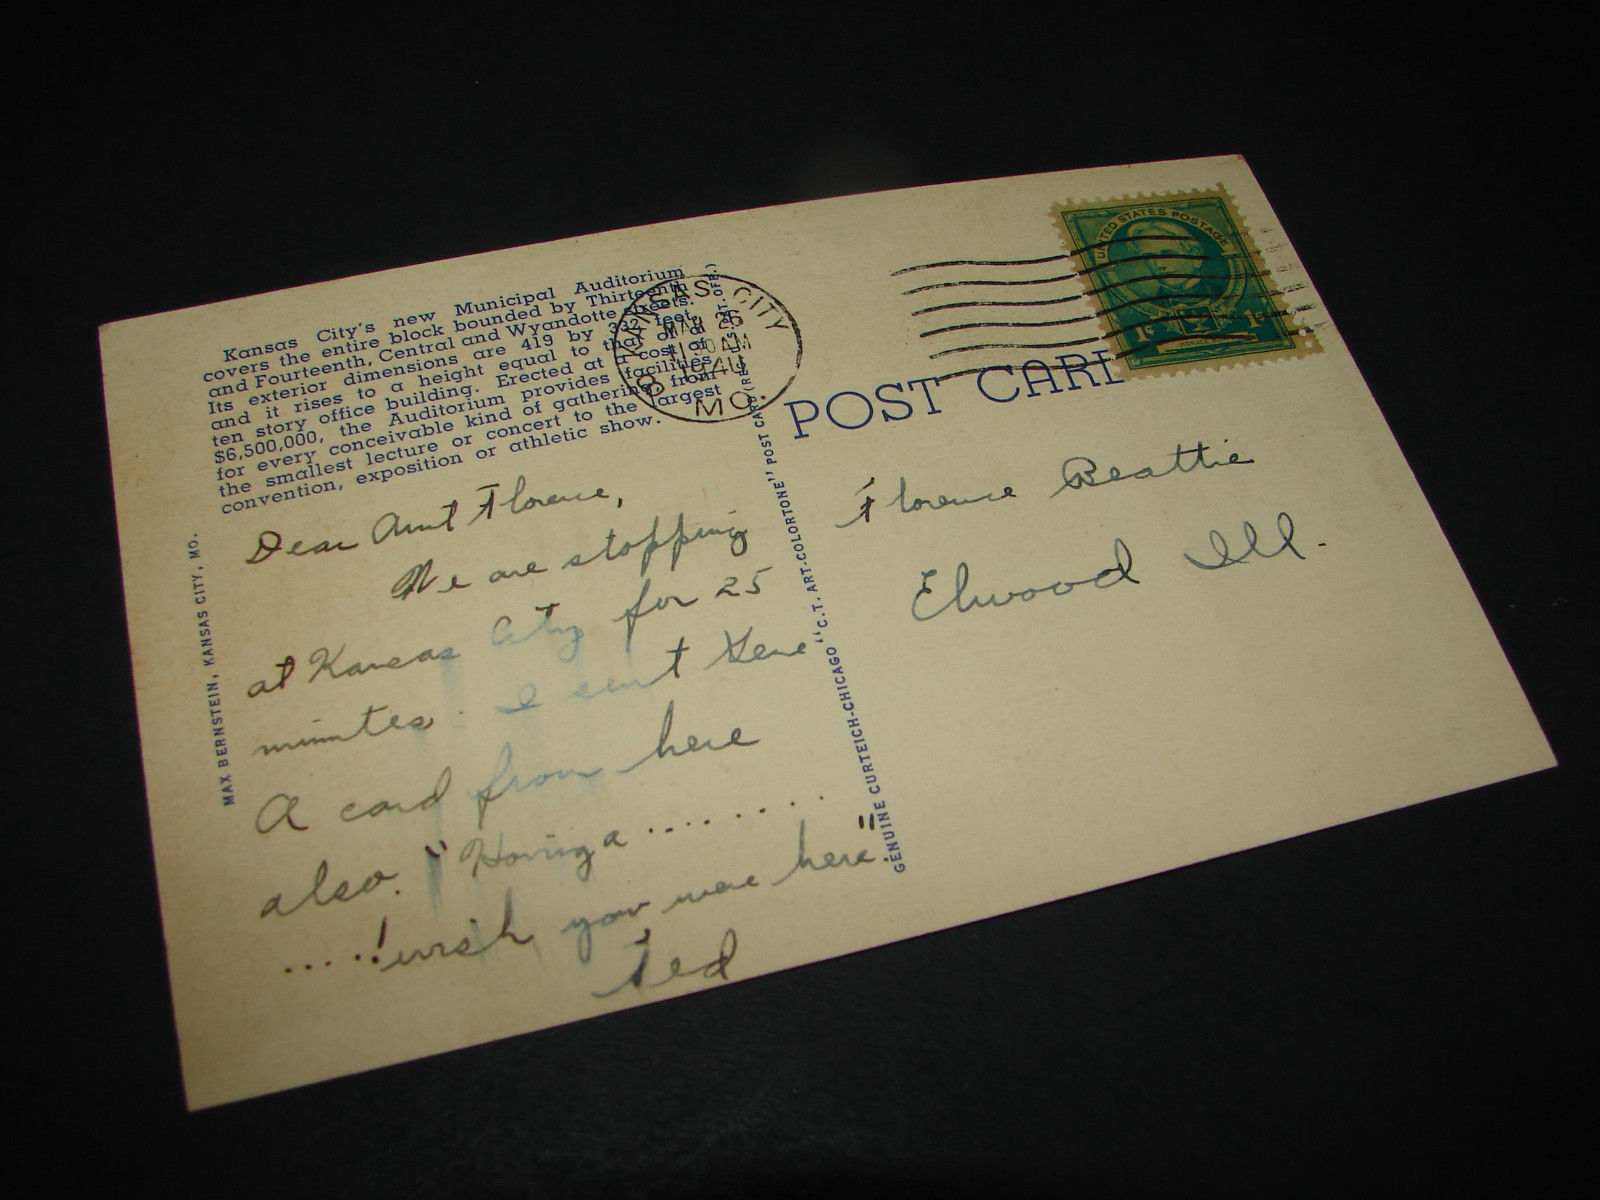 Kansas City's new Municipal Auditorium
covers the entire block bounded by Thirteenth
and Fourteenth, Central and Wyandotte Streets.
Its exterior dimensions are 419 by 332 feet,
and it rises to a height equal to that of a
ten story office building. Erected at a cost of
$6,500,000, the Auditorium provides facilities
for every conceivable kind of gathering from
the smallest lecture or concert to the largest
convention, exposition or athletic show.
KANSAS CITY
MAR 26
11 30 AM
1941
8
MO.
UNITED STATES POSTAGE
1¢ 1¢
HORACE
POST CARD
Dear Aunt Florence,
We are stopping
at Kansas City for 25
minutes. I sent Gene
A card from here
also. "Having a ........
.....! wish you were here."
Ted
Florence Beattie
Elwood Ill.
MAX BERNSTEIN, KANSAS CITY, MO.
GENUINE CURTEICH-CHICAGO "C.T. ART-COLORTONE" POST CARD (REG. U.S. PAT. OFF.)